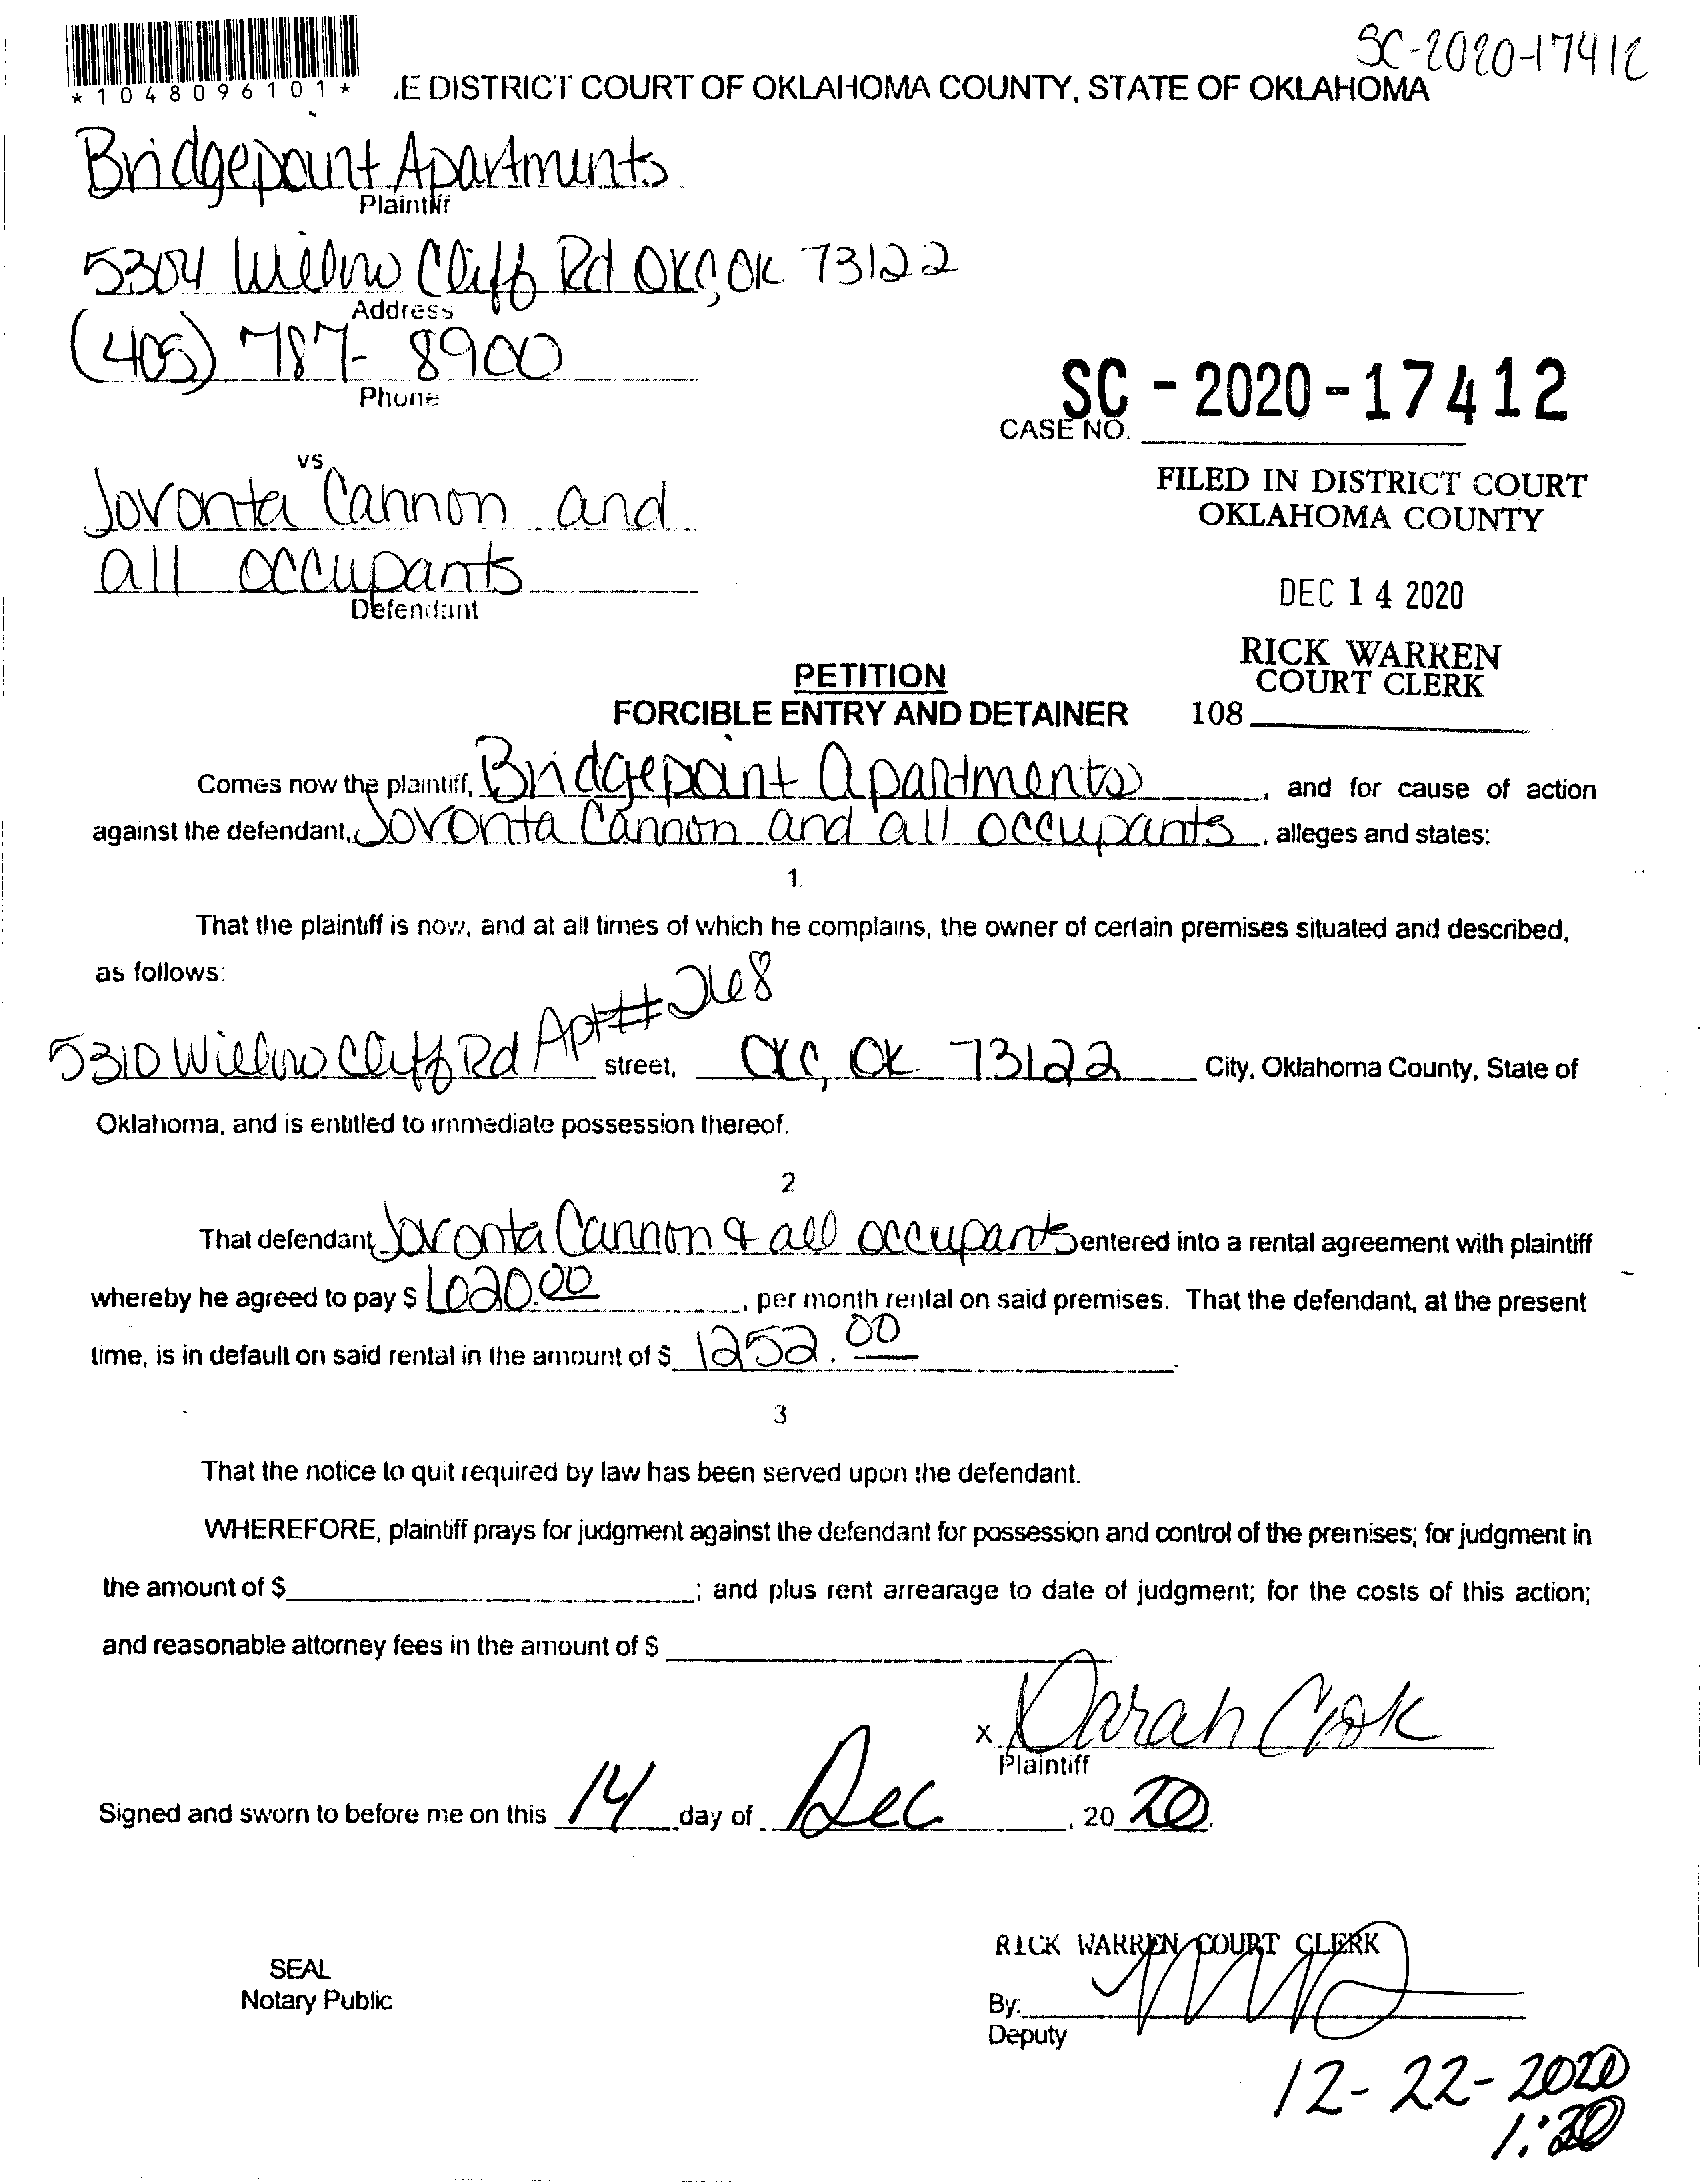 SC-2020-17412
*1048096101*
.E DISTRICT COURT OF OKLAHOMA COUNTY, STATE OF OKLAHOMA
Bridgepoint Apartments
Plaintiff
5304 Willow Cliff Rd OKC, OK 73122
Address
(405) 787-8900
Phone
SC-2020-17412
CASE NO.
vs
Jovonta Cannon and
all occupants
Defendant
FILED IN DISTRICT COURT
OKLAHOMA COUNTY
DEC 14 2020
RICK WARREN
COURT CLERK
108
PETITION
FORCIBLE ENTRY AND DETAINER
Comes now the plaintiff, Bridgepoint Apartments, and for cause of action
against the defendant, Jovonta Cannon and all occupants, alleges and states:
1.
That the plaintiff is now, and at all times of which he complains, the owner of certain premises situated and described,
as follows:
5310 Willow Cliff Rd Apt# 268 street, OKC, OK 73122 City, Oklahoma County, State of
Oklahoma, and is entitled to immediate possession thereof.
2
That defendant Jovonta Cannon & all occupants entered into a rental agreement with plaintiff
whereby he agreed to pay $ 1020.00, per month rental on said premises. That the defendant, at the present
time, is in default on said rental in the amount of $ 1252.00.
3
That the notice to quit required by law has been served upon the defendant.
WHEREFORE, plaintiff prays for judgment against the defendant for possession and control of the premises; for judgment in
the amount of $ ; and plus rent arrearage to date of judgment; for the costs of this action;
and reasonable attorney fees in the amount of $
x Darah Cook
Plaintiff
Signed and sworn to before me on this 14 day of Dec, 20 20.
SEAL
Notary Public
RICK WARREN COURT CLERK
By:
Deputy
12-22-2020
1:30